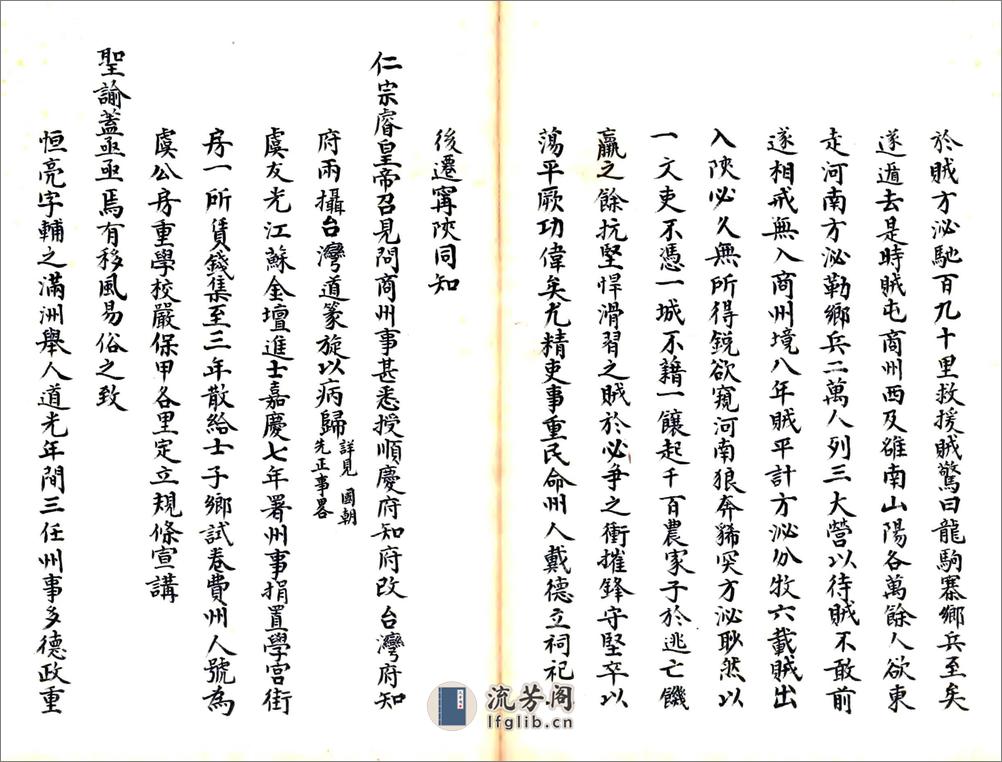 於賊方泌馳百九十里救援賊驚曰龍駒寨鄉兵至矣
遂遁去是時賊屯商州西及雒南山陽各萬餘人欲東
走河南方泌勒鄉兵二萬人列三大營以待賊不敢前
遂相戒無入商州境八年賊平計方泌分牧六載賊出
入陝必久無所得銳欲窺河南狼奔豨突方泌眇然以
一文吏不憑一城不藉一饟起千百農家子於逃亡饑
羸之餘抗堅悍滑習之賊於必爭之衝摧鋒守堅卒以
蕩平厥功偉矣尤精吏事重民命州人戴德立祠祀
後遷寧陝同知
仁宗睿皇帝召見問商州事甚悉授順慶府知府改台灣府知
府兩攝台灣道篆旋以病歸詳見國朝先正事畧
虞友光江蘇金壇進士嘉慶七年署州事捐置學宮街
房一所賃錢集至三年散給士子鄉試卷費州人號為
虞公房重學校嚴保甲各里定立規條宣講
聖諭蓋亟亟焉有移風易俗之致
恒亮字輔之滿洲舉人道光年間三任州事多德政重
流芳阁
lfglib.cn